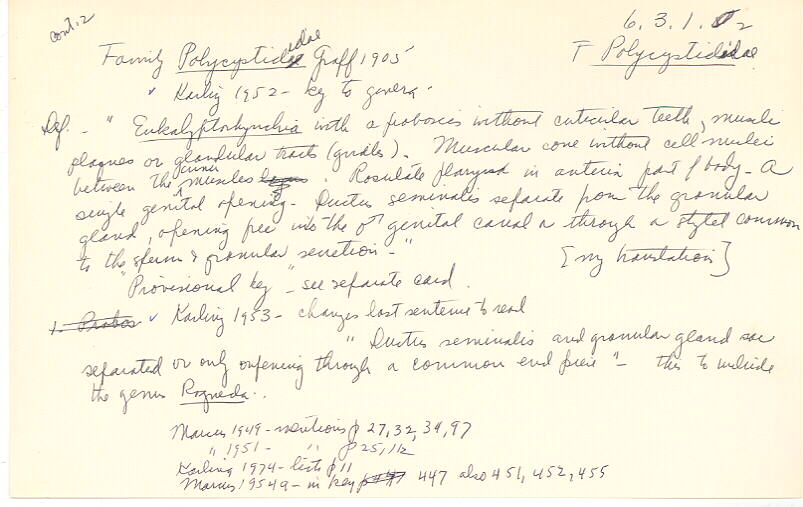 cont. 2
6.3.1.2
Family Polycystididae Graff 1905
F Polycystididae
✓ Karling 1952 - key to genera.
Def. - "Eukalyptorhynchia with a proboscis without cuticular teeth, muscle
plaques or glandular tracts (girdles). Muscular cone without cell nuclei
between the inner muscles. Rosulate pharynx in anterior part of body - A
single genital opening - Ductus seminalis separate from the granular
gland, opening free into the ♂ genital canal or through a stylet common
to the sperm & granular secretion - "
[my translation]
"Provisional key" - see separate card.
1. Probos ✓ Karling 1953 - changes last sentence to read
"Ductus seminalis and granular gland sac
separated or only opening through a common end piece" - this to include
the genus Rogneda.
Marcus 1949 - mentions p 27, 32, 34, 97
" 1951 - " p 25, 112
Karling 1974 - lists p 11
Marcus 1954a - in key p 447 also 451, 452, 455